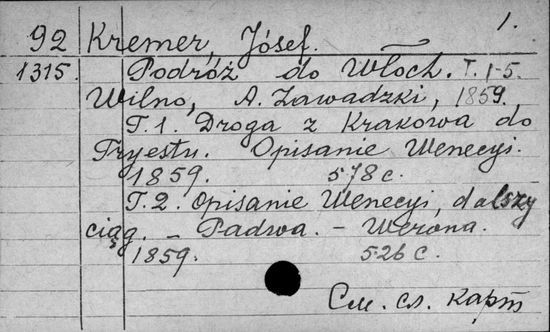 1.
92 Kremer, Józef.
1315. Podróż do Włoch. T. 1-5.
Wilno, A. Zawadzki, 1859.
T. 1. Droga z Krakowa do
Tryestu. Opisanie Wenecyi.
1859. 578 c.
T. 2. Opisanie Wenecyi, dalszy
ciąg. – Padwa. – Werona.
1859. 526 c.
См. сл. карт